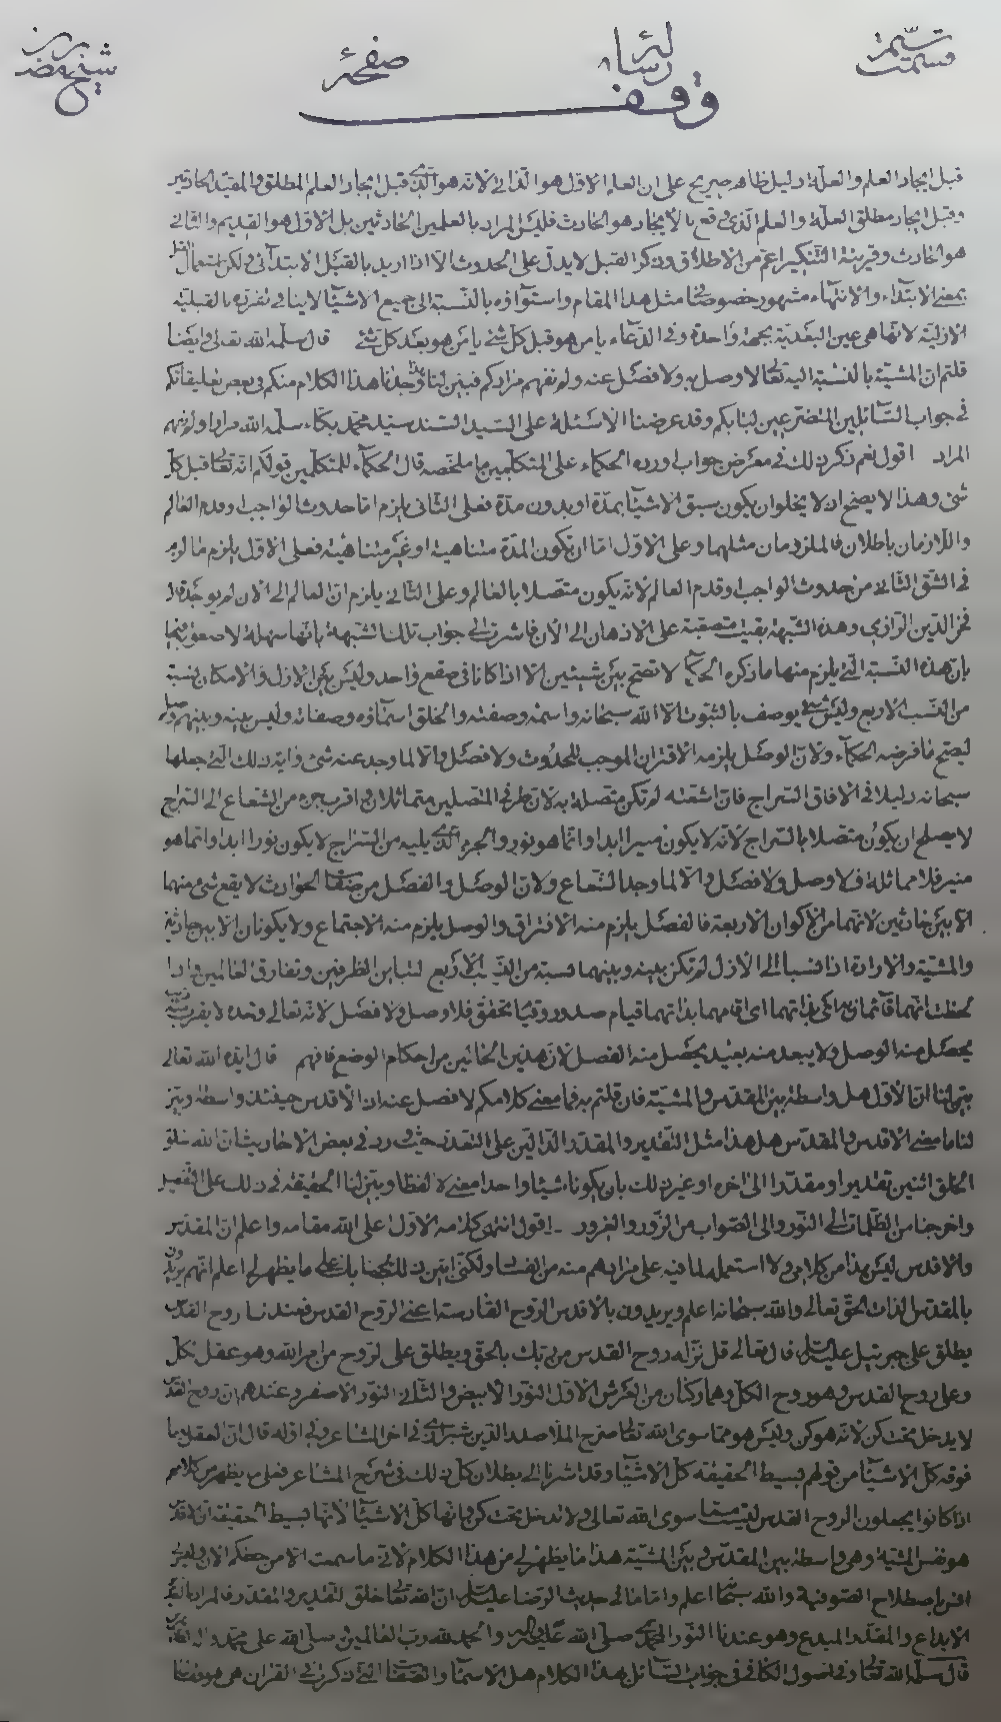 تسمت قسمت
رسالهٔ
صفحهٔ
شیخ
وقف
قبل ايجاد العلم والعلة دليل ظاهر صريح على ان العلم الاول هو الذاتي لانه هو الذي قبل ايجاد العلم المطلق والمقيد الحادثين
وقبل ايجاد مطلق العلة والعلم الذي وقع بالايجاد هو الحادث فليس المراد بالعلمين الحادثين بل الاول هو القديم والثاني
هو الحادث وقرينة التنكير اعم من الاطلاق وذكر القبل لا يدل على الحدوث الا اذا اريد بالقبل الابتدائي ولكن استعمال القبل
بمعنى الابتداء والانتهاء مشهور خصوصا في مثل هذا المقام واستواؤه بالنسبة الى جميع الاشيآ لا ينافي تفرده بالقبلية
الازلية لانها هي عين البعدية بجهة واحدة وفي الدعاء يا من هو قبل كل شئ يا من هو بعد كل شئ قال سلمه الله تعالى وايضا
قلتم ان المشية بالنسبة اليه تعالى لا وصل به ولا فصل عنه ولم نفهم مرادكم فبين لنا وجدنا هذا الكلام منكم في بعض تعليقاتكم
في جواب السآئلين المتضرعين لبابكم وقد عرضنا الاسئلة على السيد السند سيد محمد بكاء سلمه الله مرارا ولم نفهم
المراد اقول نعم ذكر ذلك في معرض جواب اورده الحكماء على المتكلمين ما ملخصه قال الحكمآء للمتكلمين قولكم انه تعالى قبل كل
شئ وهذا لا يصح اذ لا يخلو ان يكون سبق الاشيآ بمدة او بدون مدة فعلى الثاني يلزم اما حدوث الواجب او قدم العالم
واللازمان باطلان فالملزومان مثلهما وعلى الاول اما ان تكون المدة متناهية او غير متناهية فعلى الاول يلزم ما لزم
في الشق الثاني من حدوث الواجب او قدم العالم لانه يكون متصلا بالعالم وعلى الثاني يلزم ان العالم الى الان لم يوجد قال
فخر الدين الرازي وهذه الشبهة بقيت مستصعبة على الاذهان الى الان فاشرت الى جواب تلك الشبهة بانها سهلة لا صعوبة فيها
بان هذه النسبة التي يلزم منها ما ذكره الحكمآ لا تصح بين شيئين الا اذا كانا في صقع واحد وليس بين الازل والامكان نسبة
من النسب الاربع وليس شئ يوصف بالثبوت الا الله سبحانه واسمه وصفته والخلق اسمآؤه وصفاته وليس بينه وبينهم وصل
ليصح ما فرضه الحكمآء ولان الوصل يلزمه الاقتران الموجب للحدوث ولا فصل والا لما وجد عنه شئ واية ذلك التي جعلها
سبحانه دليلا في الافاق السراج فان اشعته لم تكن متصلة به لان طرفي المتصلين متماثلان واقرب جزء من الشعاع الى السراج
لا يصلح ان يكون متصلا بالسراج لانه لا يكون منيرا ابدا وانما هو نور والجزء الذي يليه من السراج لا يكون نورا ابدا وانما هو
منير فلا مماثلة فلا وصل ولا فصل والا لما وجد الشعاع ولان الوصل والفصل من صفات الحوادث لا يقع شئ منهما
الا بين حادثين لانهما من الاكوان الاربعة فالفصل يلزم منه الافتراق والوصل يلزم منه الاجتماع ولا يكونان الا بين حادثين
والمشية والارادة اذا نسبا الى الازل لم تكن بينه وبينهما نسبة من النسب الاربع لتباين الطرفين وتفارق العالمين واذا
لحظت انهما قائمان به اي بذاتهما اي اقامهما بذاتهما قيام صدور وقيام تحقق فلا وصل ولا فصل لانه تعالى وحده لا يقرب
يحصل منه الوصل ولا يبعد منه بعيد يحصل منه الفصل لان هذين الحالين من احكام الوضع فافهم قال ايده الله تعالى
بين لنا ان الاول هل واسطة بين المقدس والمشية فان قلتم به فما معنى كلامكم لا فصل عنه اذ الاقدس حينئذ واسطة وبين
لنا ما معنى الاقدس والمقدس هل هذا مثل التقدير والمقدر الدالين على التعدد حيث ورد في بعض الاحاديث ان الله خلق
الخلق اثنين تقديرا ومقدرا الى اخره او غير ذلك بان يكونا شيئا واحدا معنى لا لفظا وبين لنا الحقيقة في ذلك على التفصيل
واخرجنا من الظلمات الى النور والى الصواب من الزور والغرور ـ اقول انتهى كلامه الاول اعلى الله مقامه واعلم ان المقدس
والاقدس ليس هذا من كلامي ولا استعمله لما فيه على مرادهم منه من الفساد ولكني ابين ذلك لجنابك على ما يظهر لي اعلم انهم يريدون
بالمقدس الذات الحق تعالى والله سبحانه اعلم ويريدون بالاقدس الروح القادسة اعني الروح القدس فعندنا روح القدس
يطلق على جبرئيل عليه السلام قال تعالى قل نزله روح القدس من ربك بالحق ويطلق على الروح من امر الله وهو عقل الكل
وعلى روح القدس وهو روح الكل وهما ركنان من العرش الاول النور الابيض والثاني النور الاصفر وعندهم ان روح القدس
لا يدخل تحت كن لانه هو كن وليس هو مما سوى الله تعالى صرح الملا صدر الدين شيرازي في اخر المشاعر وفي اوله قال ان العقل وما
فوقه كل الاشيآ من قولهم بسيط الحقيقة كل الاشيآ وقد اشرنا الى بطلان كل ذلك في شرح المشاعر فعلى ما يظهر من كلامهم
اذا كانوا يجعلون الروح القدس ليست مما سوى الله تعالى ولا تدخل تحت كن وانها كل الاشيآ لانها بسيط الحقيقة ان الاقدس
هو نفس المشية وهي واسطة بين المقدس وبين المشية هذا ما يظهر لي من هذا الكلام لاني ما سمعت الا من جنابكم الان وليس
افق باصطلاح الصوفية والله سبحانه اعلم واما ما في حديث الرضا عليه السلام ان الله تعالى خلق التقدير والمقدر فالمراد بالتقدير
الابداع والمقدر المبدع وهو عندنا النور المحمدي صلى الله عليه واله والحمد لله رب العالمين صلى الله على محمد واله الطاهرين
قال سلمه الله تعالى وفي اصول الكافي في جواب السآئل بهذا الكلام هل الاسمآ والصفات التي ذكر في القران هي هو فقال